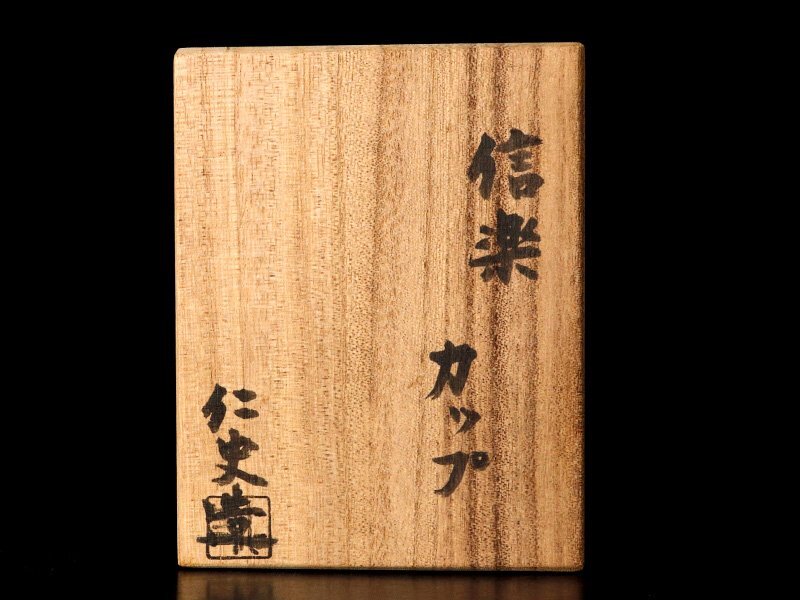 信楽
カップ
仁史